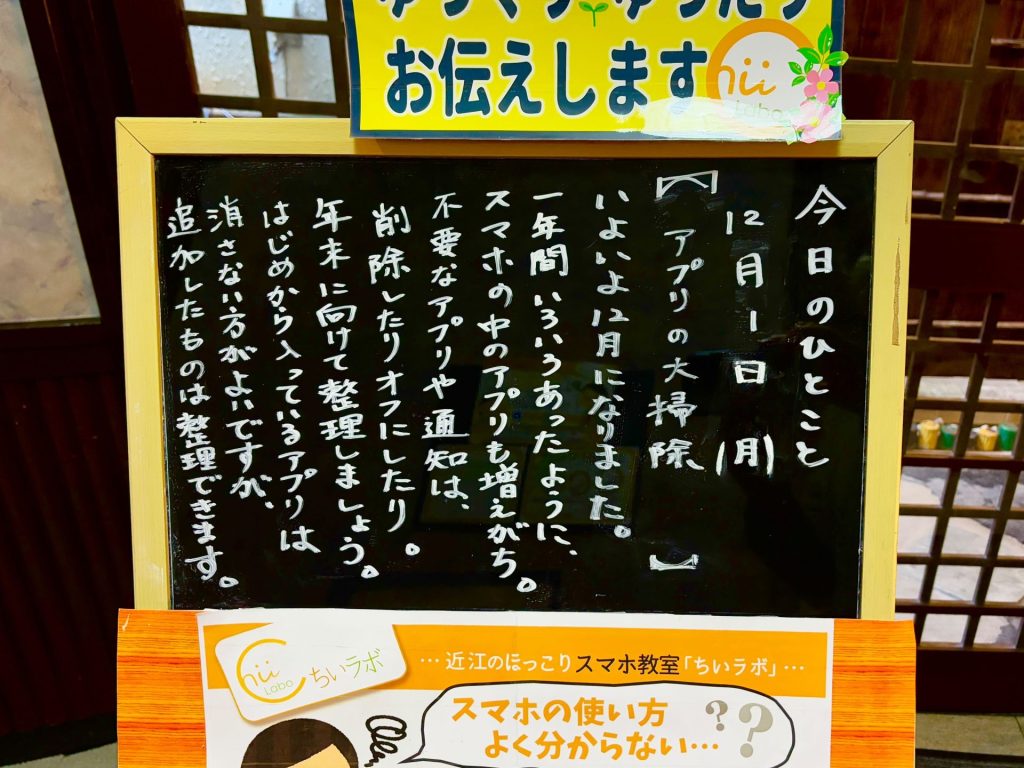 ゆっくりゆったり
お伝えします
Chii
Labo
今日のひとこと
12月1日(月)
【アプリの大掃除】
いよいよ12月になりました。
一年間いろいろあったように、
スマホの中のアプリも増えがち。
不要なアプリや通知は、
削除したりオフにしたり。
年末に向けて整理しましょう。
はじめから入っているアプリは
消さない方がよいですが、
追加したものは整理できます。
Chii
Labo
ちいラボ
…近江のほっこりスマホ教室「ちいラボ」…
スマホの使い方
よく分からない…
??